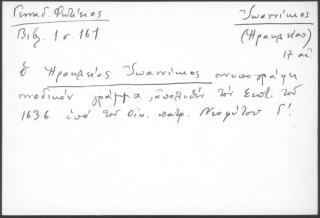 Γενναδ. Φωτίειος
Βιβλ. 1 σ. 161
Ἰωαννίκιος
(Ἡρακλείας)
17 αἰ.
Ὁ Ἡρακλείας Ἰωαννίκιος συνυπογράφει
συνοδικὸν γράμμα, ἀπολυθὲν τὸν Σεπτ. τοῦ
1636 ὑπὸ τοῦ Οἰκ. πατρ. Νεοφύτου Γ'.